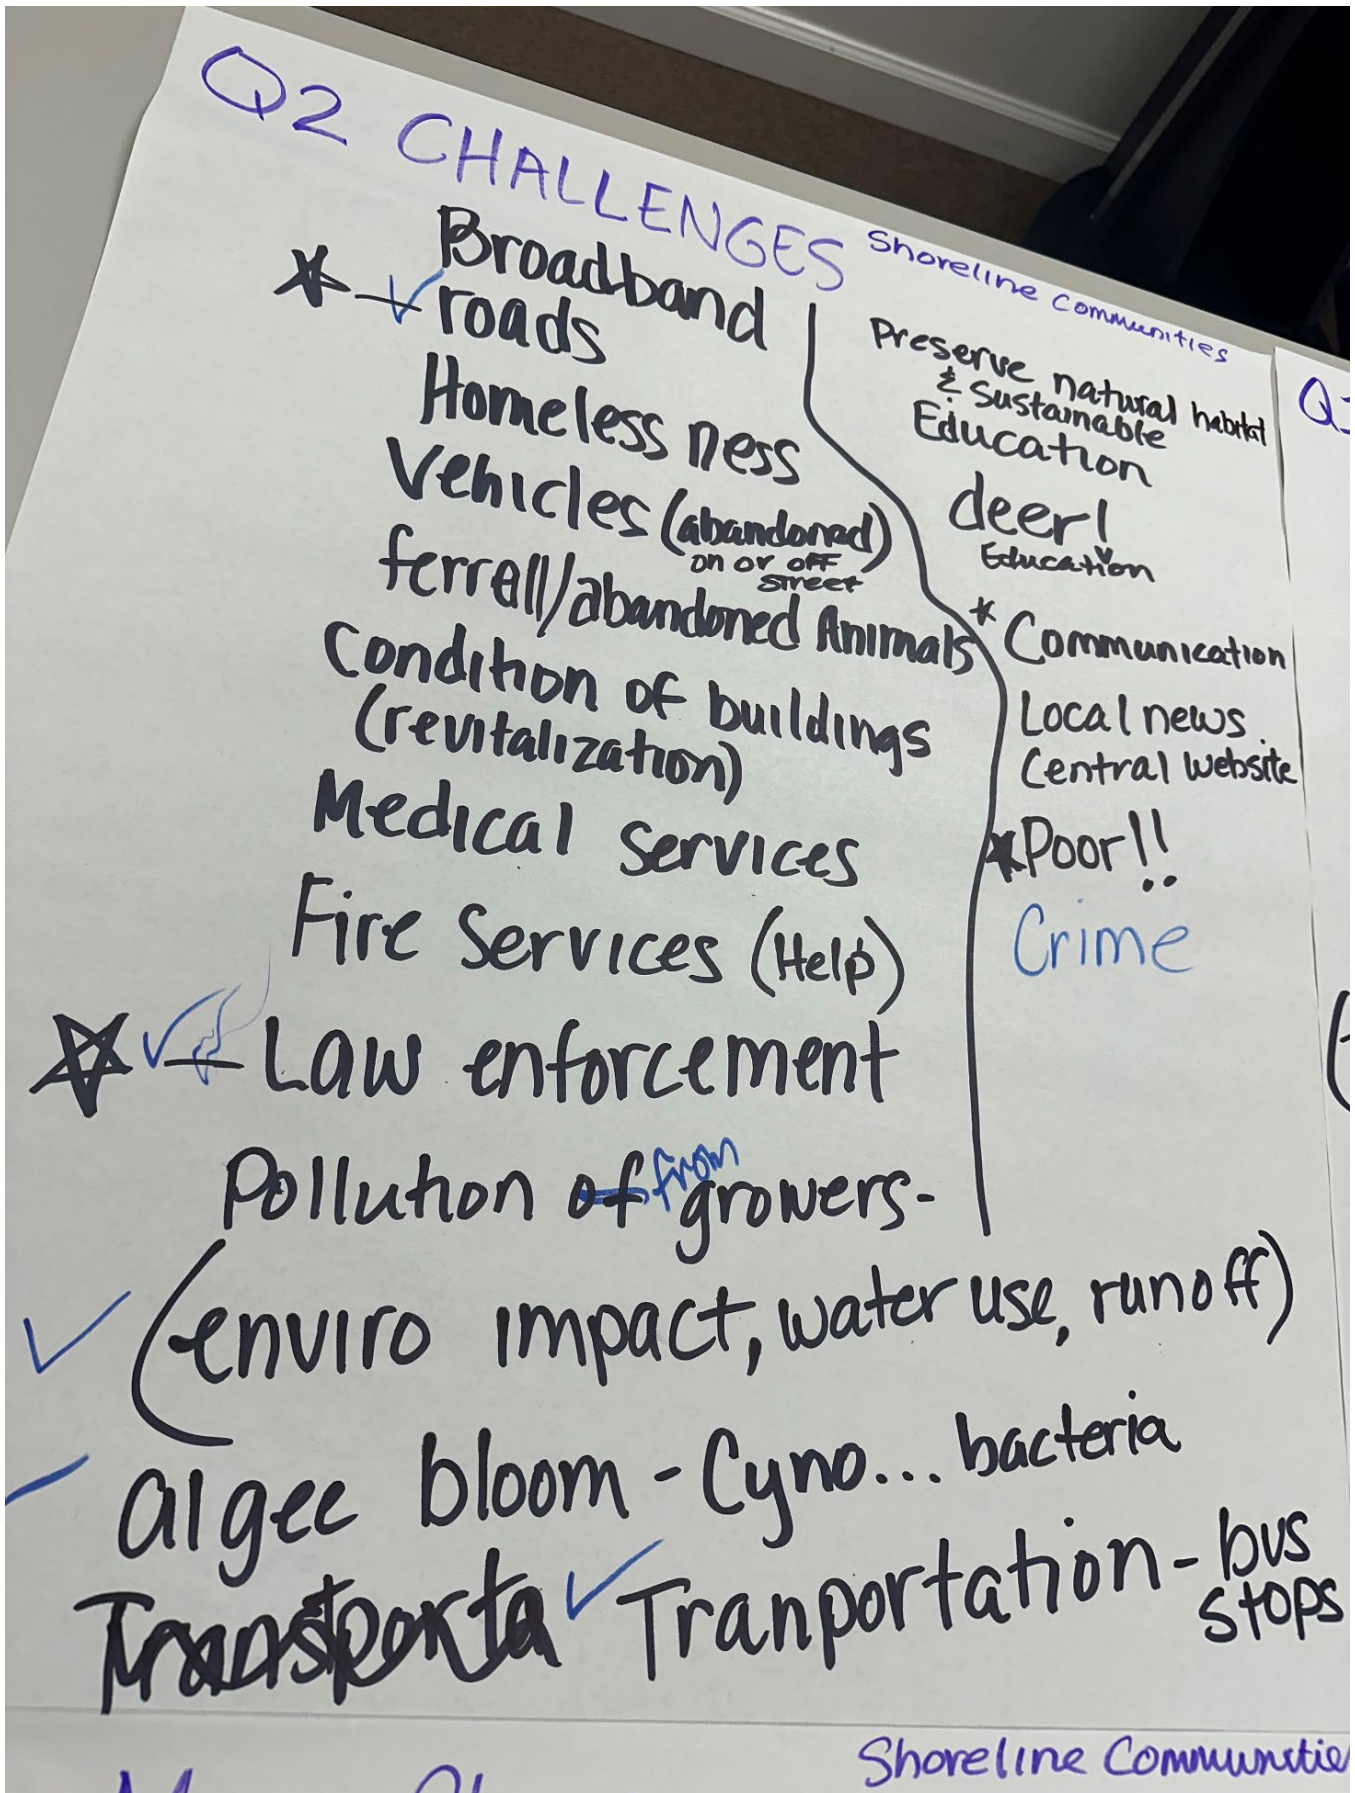 Q2 CHALLENGES
Shoreline Communities
Broadband
roads
Homeless ness
Vehicles (abandoned)
on or off
street
ferrell/abandoned Animals
Condition of buildings
(revitalization)
Medical Services
Fire Services (Help)
Law enforcement
Pollution of from growers-
(enviro impact, water use, runoff)
algee bloom - Cyno... bacteria
Transporta Tranportation - bus
stops
Preserve natural habitat
& Sustainable
Education
deer!
Education
* Communication
Local news.
Central website
Poor!!
Crime
Shoreline Communitie